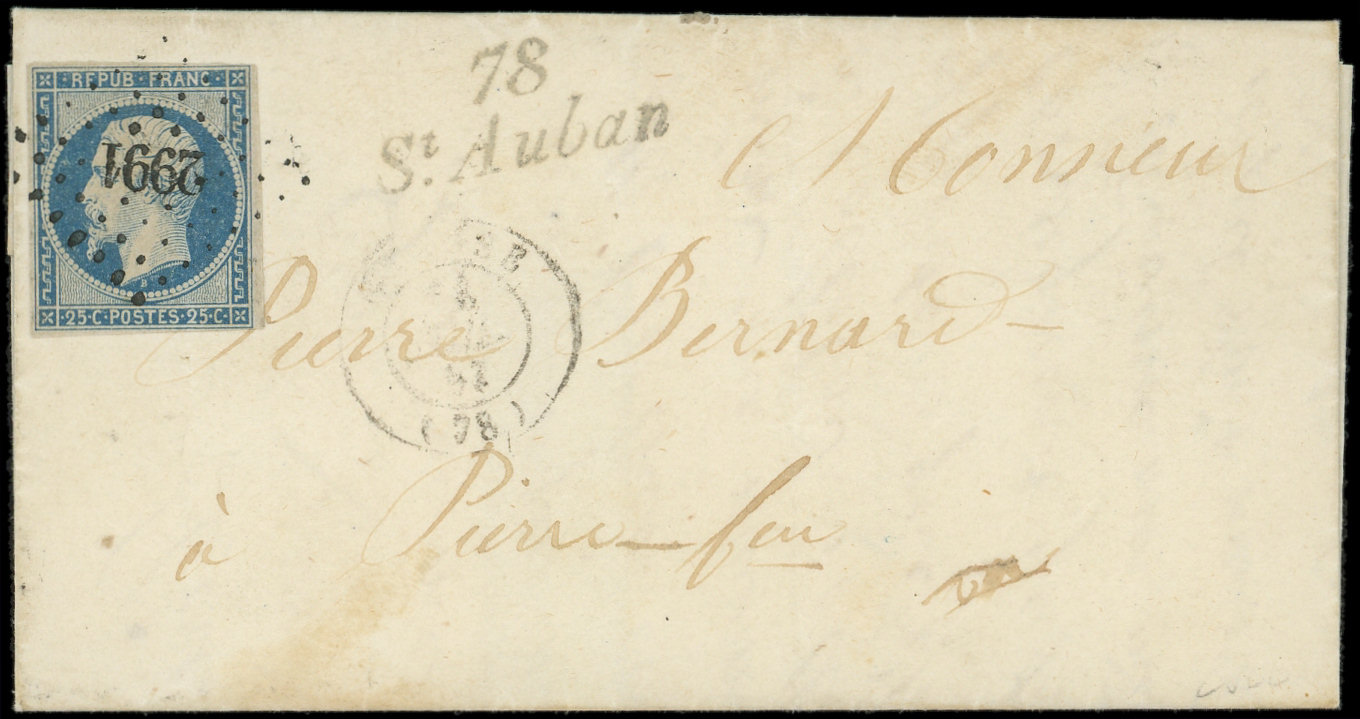 REPUB FRANC
25·C·POSTES·25·C·
78
St. Auban
(78)
Monsieur
Pierre Bernard
à Pierre-feu
var